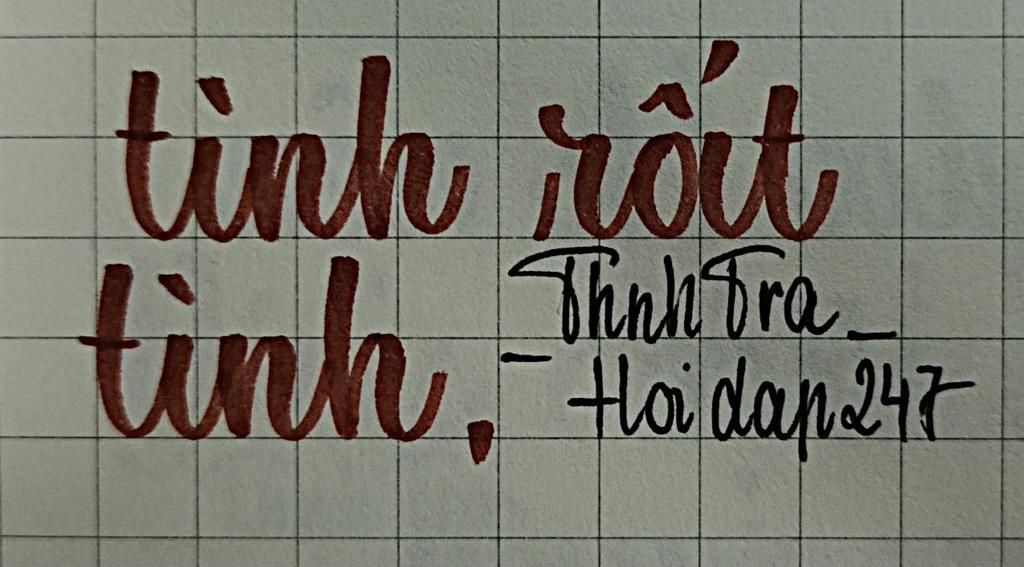 tình rất
tình.
ThnhTra_
- Hoidap247